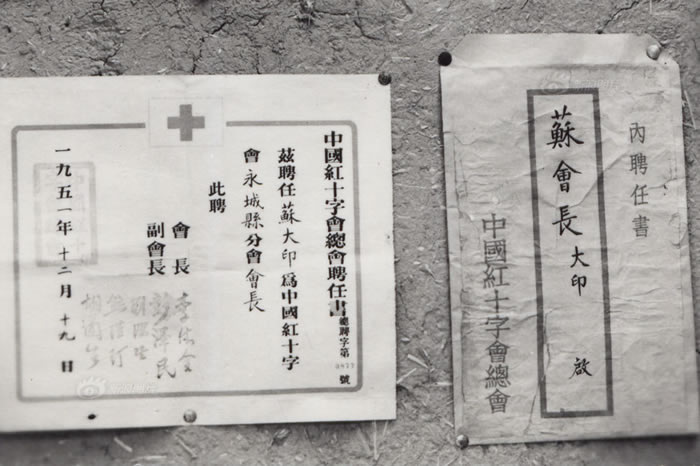 中國紅十字會總會聘任書
總聘字第
號
茲聘任蘇大印爲中國紅十字
會永城縣分會會長
此聘
會長
李德全
副會長
彭澤民
熊瑾玎
胡蘭生
一九五一年十二月十九日
內聘任書
蘇會長大印 啟
中國紅十字會總會